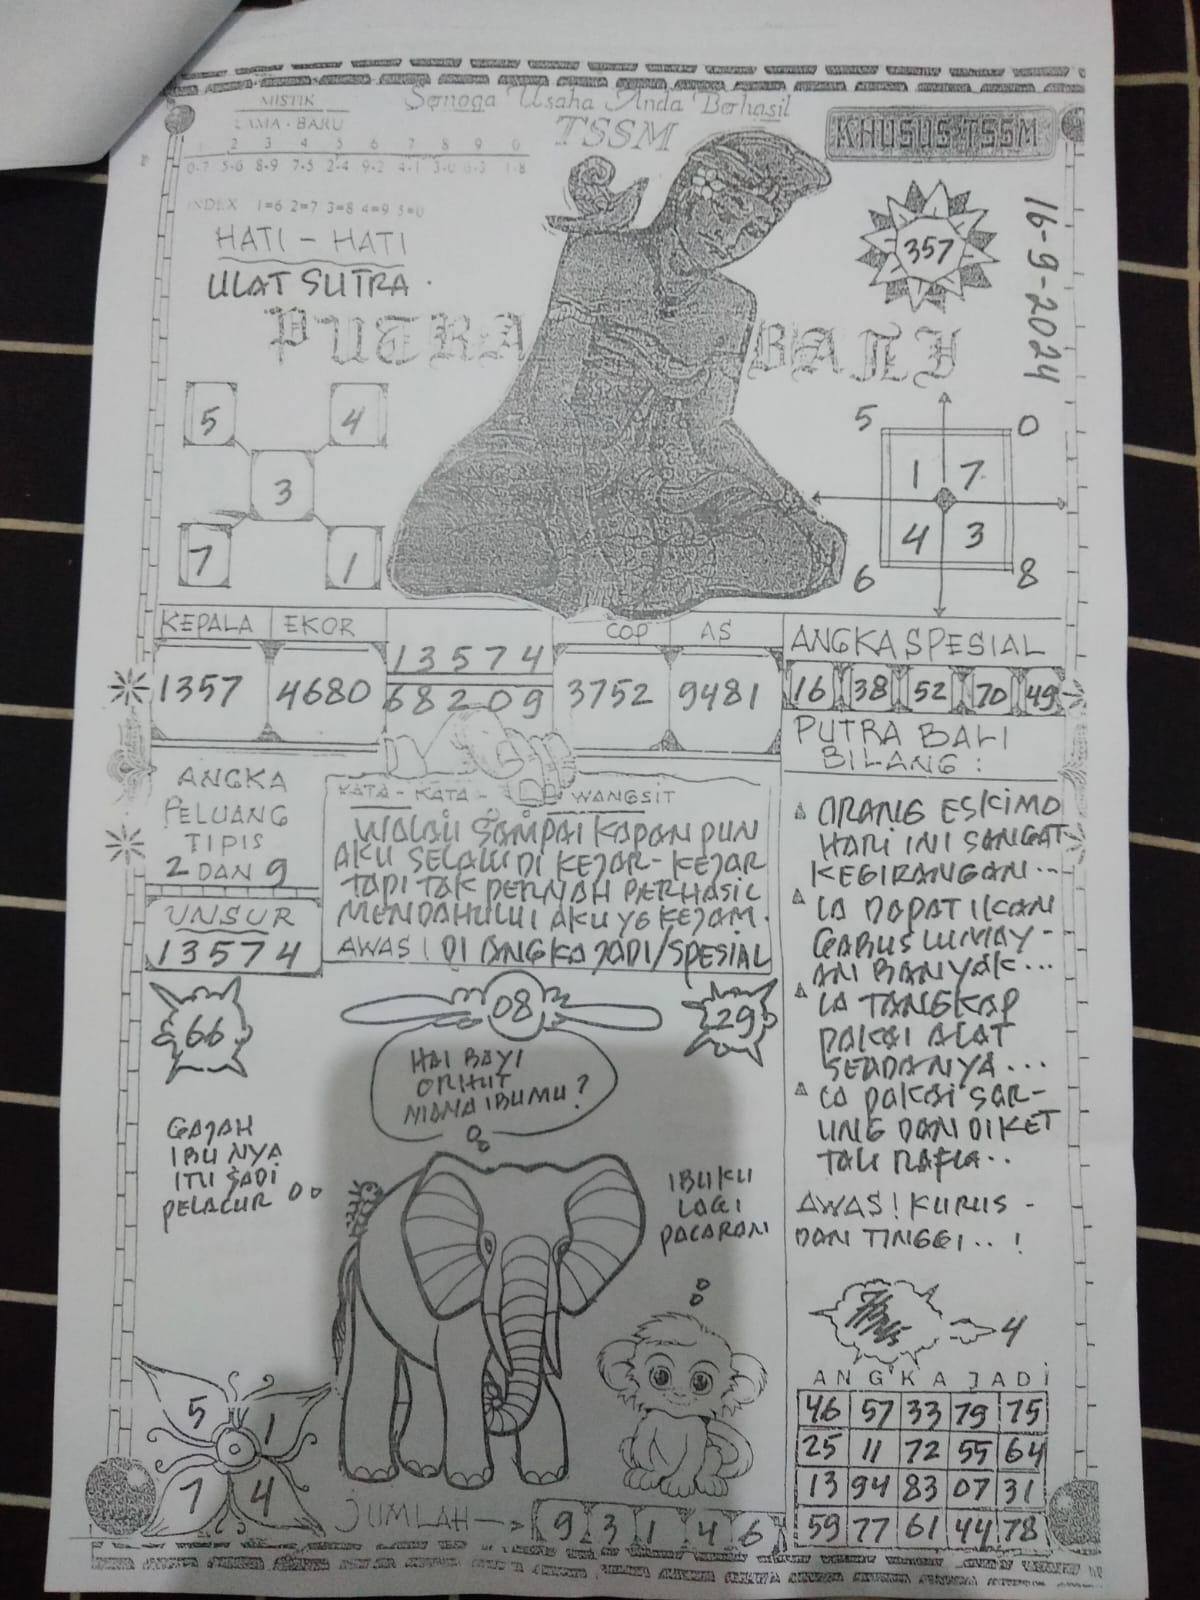 MISTIK
LAMA - BARU
Semoga Usaha Anda Berhasil
TSSM
KHUSUS TSSM
2 3 4 5 6 7 8 9 0
0-7 5-6 8-9 7-5 2-4 9-2 4-1 3-0 6-3 1-8
INDEX 1=6 2=7 3=8 4=9 5=0
HATI - HATI
ULAT SUTRA.
357
16-9-2024
PUTRA BALI
5 4
3
7 1
5 0
1 7
4 3
6 8
KEPALA EKOR
1357 4680
13574
68209
COP AS
3752 9481
ANGKA SPESIAL
16 38 52 70 49
ANGKA
PELUANG
TIPIS
2 DAN 9
UNSUR
13574
KATA - KATA - WANGSIT
WALAU SAMPAI KAPAN PUN
AKU SELALU DI KEJAR-KEJAR
TAPI TAK PERNAH BERHASIL
MENDAHULUI AKU YG KEJAM.
AWAS! DI ANGKA JADI/SPESIAL
PUTRA BALI
BILANG :
ORANG ESKIMO
HARI INI SANGAT
KEGIRANGAN...
IA DAPAT IKAN
GABUS LUMAY-
AN BANYAK...
IA TANGKAP
PAKAI ALAT
SEADANYA...
IA PAKAI SAR-
UNG DAN DIKET
TALI RAFIA..
AWAS! KURUS -
DAN TINGGI..!
66
08
29
HAI BAYI
MANA IBUMU?
GAJAH
IBU NYA
ITU JADI
PELACUR
IBUKU
LAGI
PACARAN
4
5 1
7 4
JUMLAH
9 3 1 4 6
ANGKA JADI
46 57 33 79 75
25 11 72 55 64
13 94 83 07 31
59 77 61 44 78